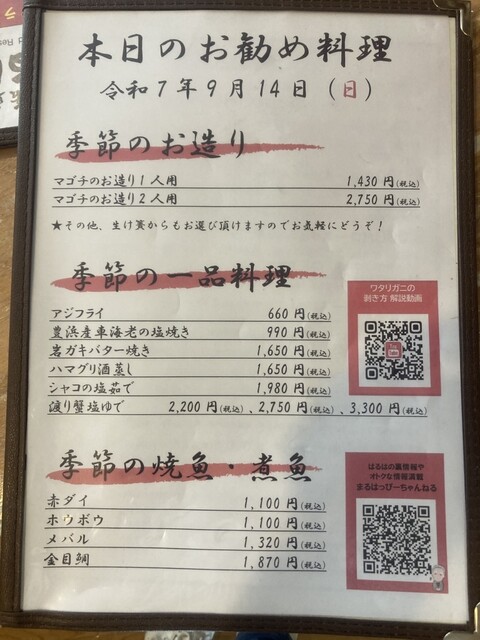 本日のお勧め料理
令和7年9月14日(日)
季節のお造り
マゴチのお造り1人用 1,430円(税込)
マゴチのお造り2人用 2,750円(税込)
★その他、生け簀からもお選び頂けますのでお気軽にどうぞ!
季節の一品料理
アジフライ 660円(税込)
豊浜産車海老の塩焼き 990円(税込)
岩ガキバター焼き 1,650円(税込)
ハマグリ酒蒸し 1,650円(税込)
シャコの塩茹で 1,980円(税込)
渡り蟹塩ゆで 2,200円(税込)、2,750円(税込)、3,300円(税込)
ワタリガニの
剥き方 解説動画
季節の焼魚・煮魚
赤ダイ 1,100円(税込)
ホウボウ 1,100円(税込)
メバル 1,320円(税込)
金目鯛 1,870円(税込)
はるはの裏情報や
オトクな情報満載
まるはっぴーちゃんねる